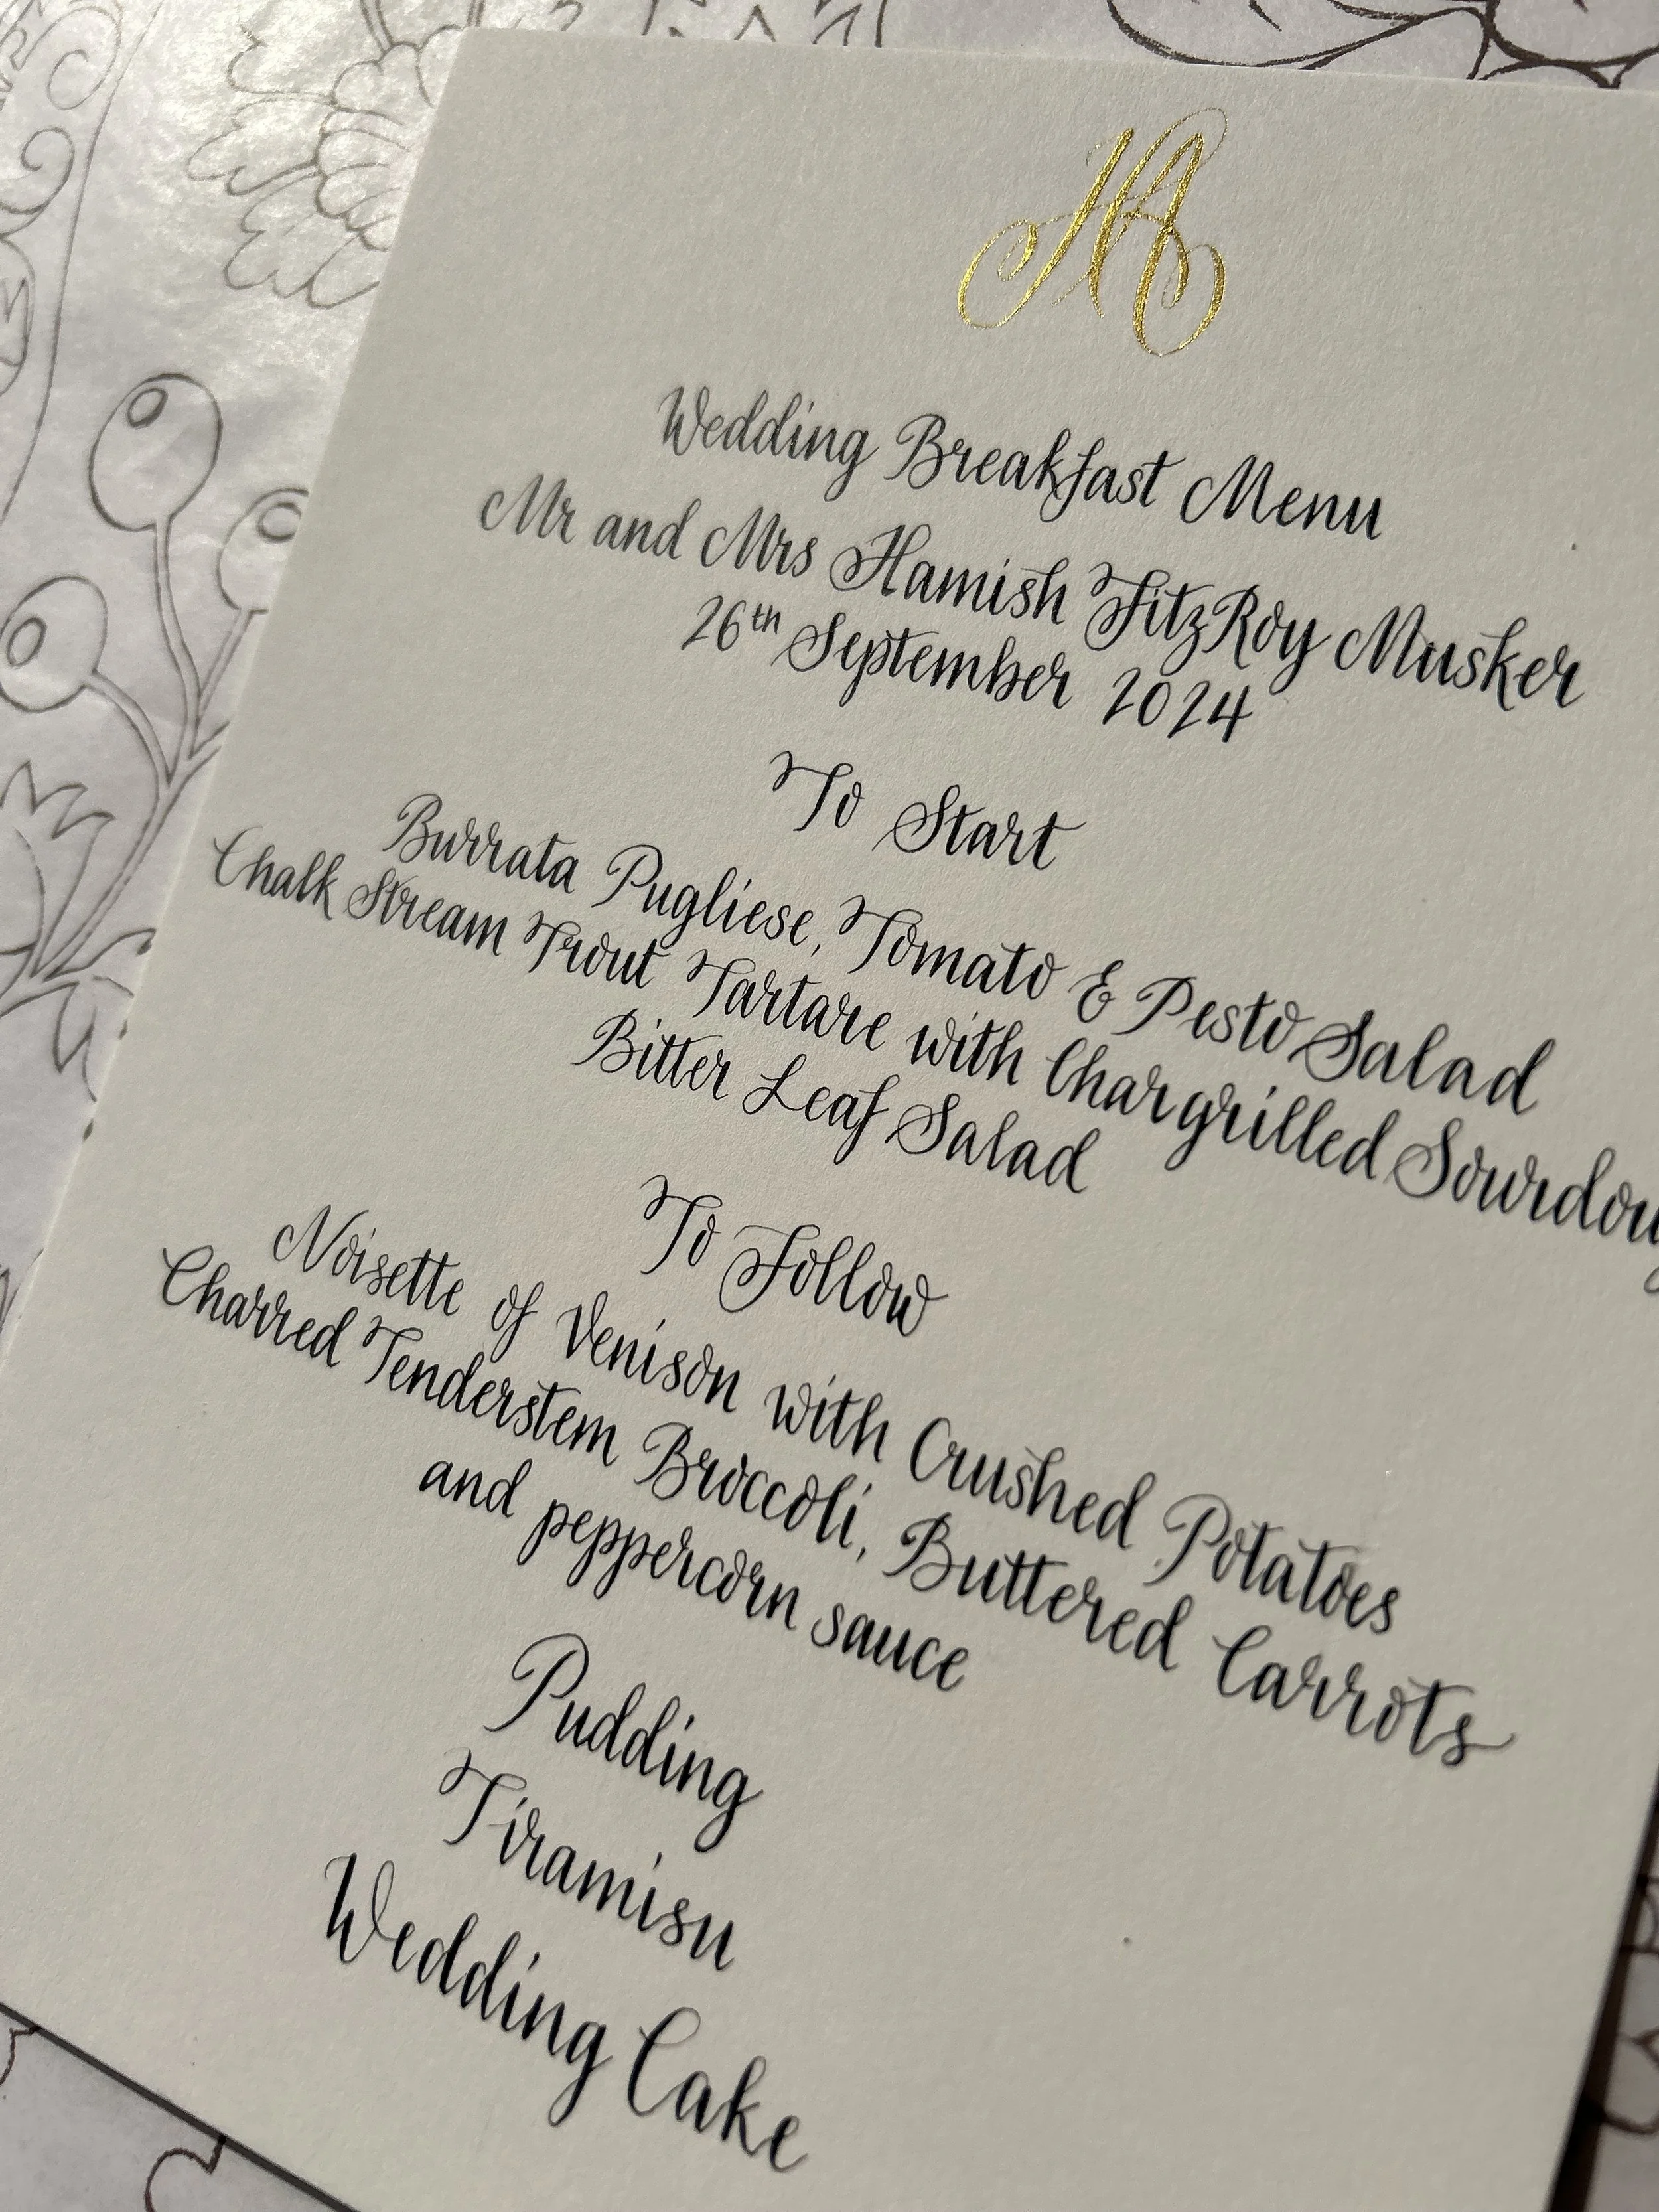 HA
Wedding Breakfast Menu
Mr and Mrs Hamish FitzRoy Musker
26th September 2024
To Start
Burrata Pugliese, Tomato & Pesto Salad
Chalk Stream Trout Tartare with Chargrilled Sourdou
Bitter Leaf Salad
To Follow
Noisette of Venison with Crushed Potatoes
Charred Tenderstem Broccoli, Buttered Carrots
and peppercorn sauce
Pudding
Tiramisu
Wedding Cake